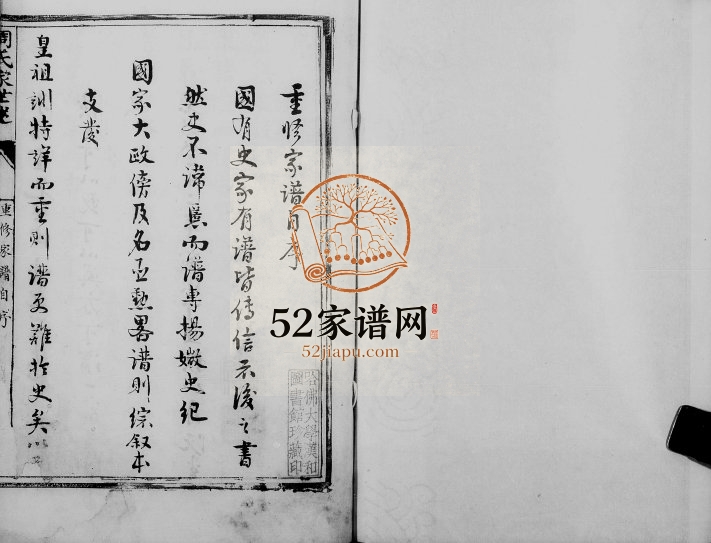 重修家譜自序
國有史家有譜皆傳信示後之書
然史不諱 而譜專揚媺史紀
國家大政傍及名臣勲畧譜則綜叙本
支發
皇祖訓特詳而重則譜更難於史矣
周氏家世
重修家譜自序
52家谱网
52jiapu.com
哈佛大學漢和
圖書館珍藏印